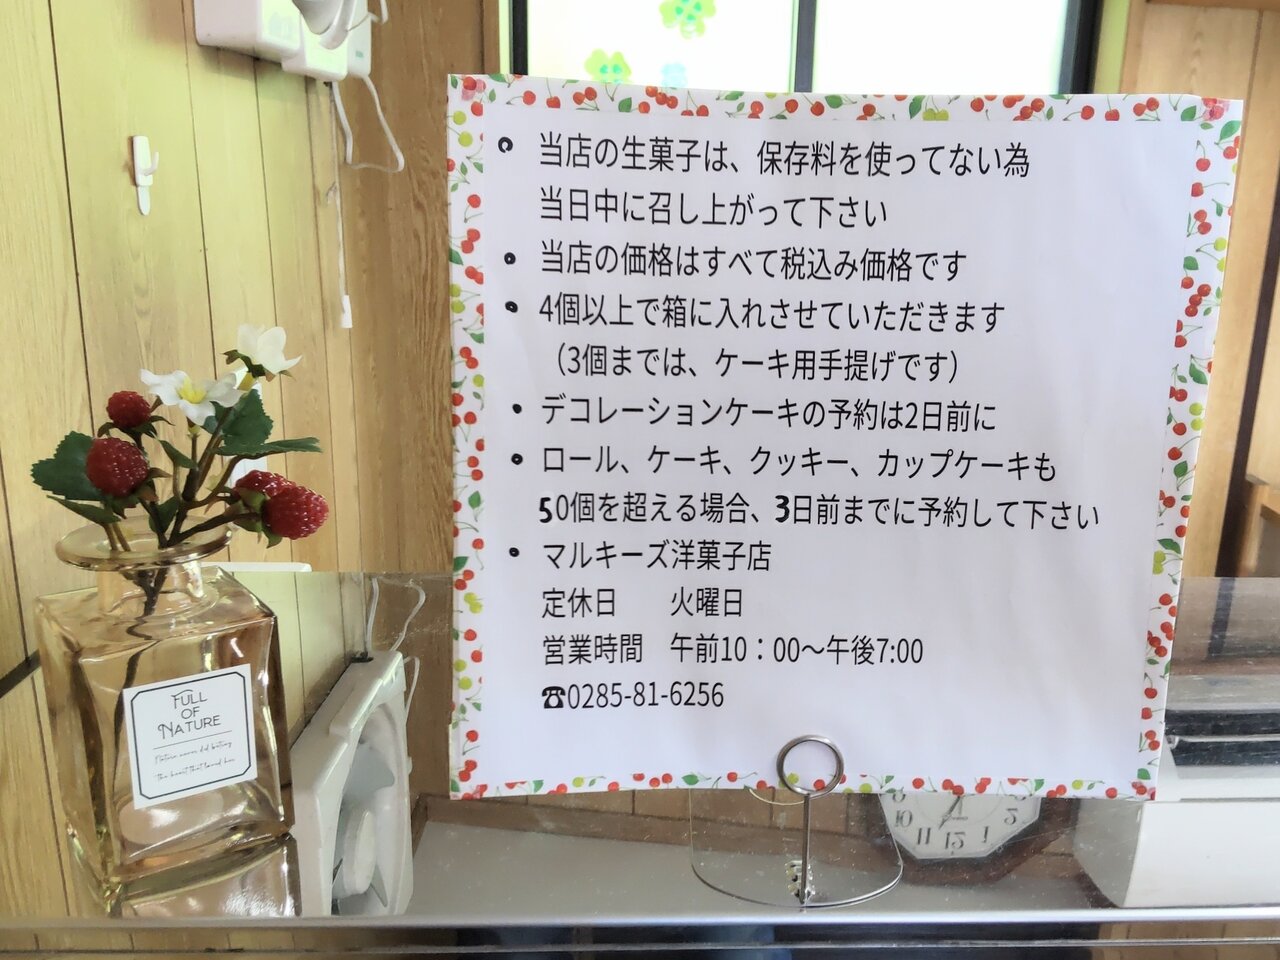 当店の生菓子は、保存料を使ってない為
当日中に召し上がって下さい
当店の価格はすべて税込み価格です
4個以上で箱に入れさせていただきます
（3個までは、ケーキ用手提げです）
デコレーションケーキの予約は2日前に
ロール、ケーキ、クッキー、カップケーキも
50個を超える場合、3日前までに予約して下さい
マルキーズ洋菓子店
定休日　火曜日
営業時間　午前10：00～午後7:00
☎0285-81-6256
FULL
OF
NATURE
Nature never did betray
the heart that loved her
11 12 1